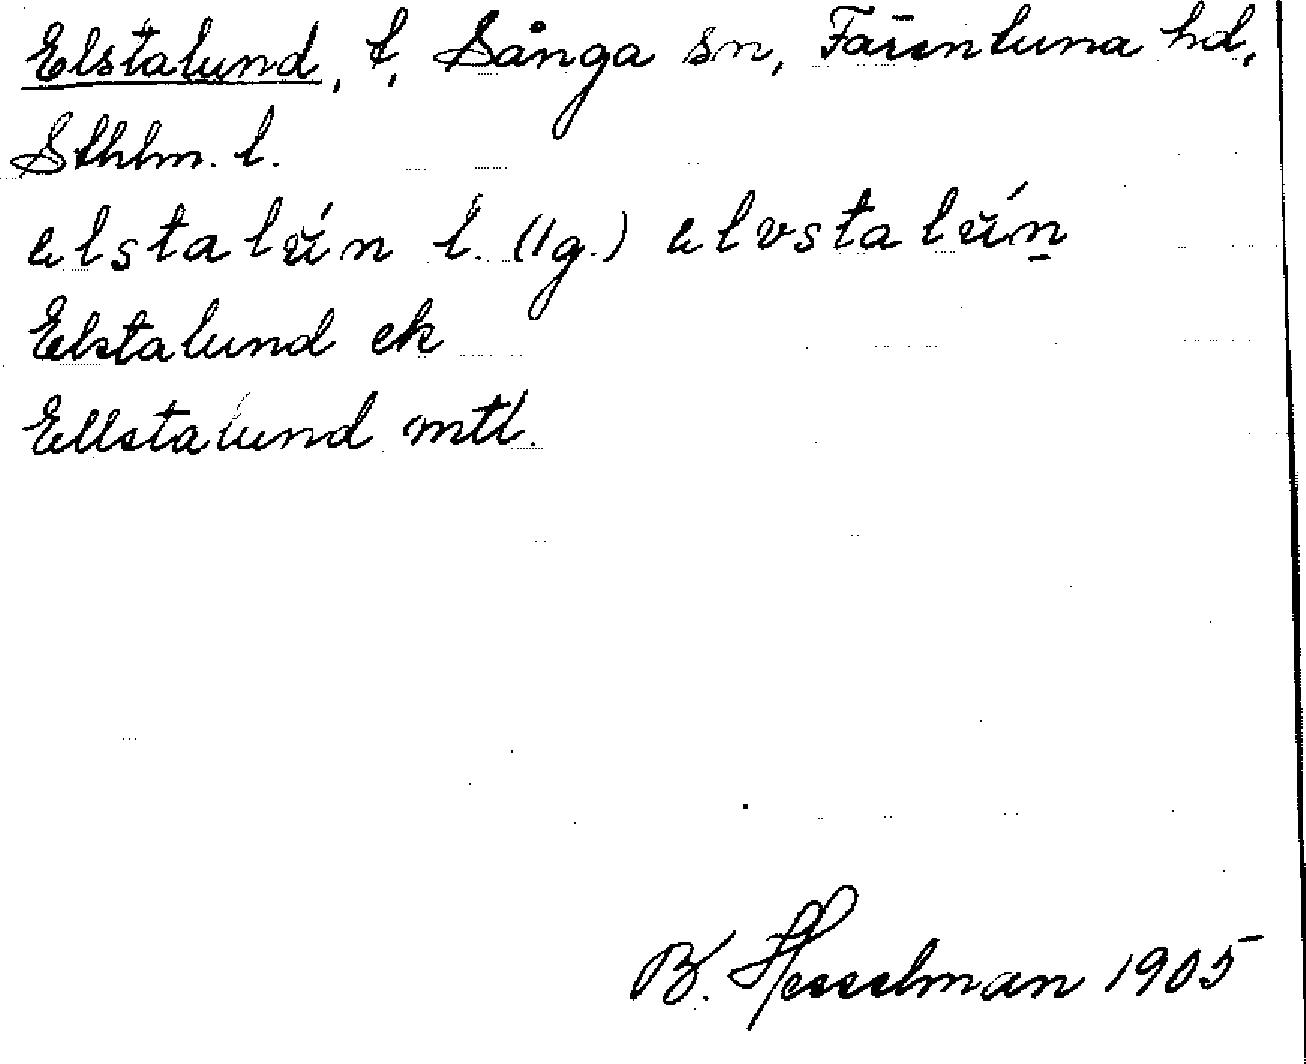 Elstalund, t, Sånga sn, Färentuna hd,
Sthlm. l.
elstalún l. (lg.) elvstalún
Elstalund ek
Ellstalund mtl.
B. Hesselman 1905